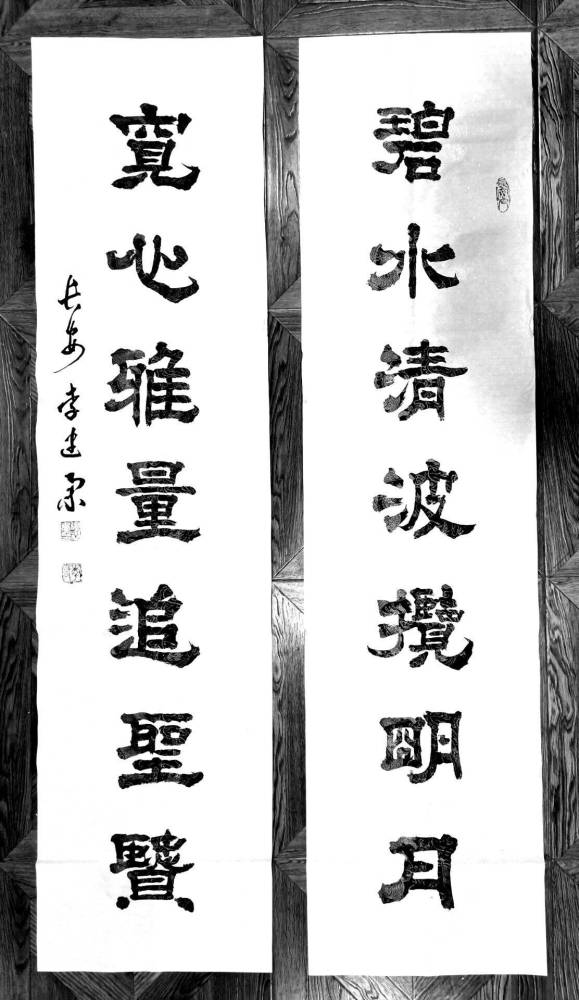 碧水清波攬明月
寬心雅量追聖賢
长安李建